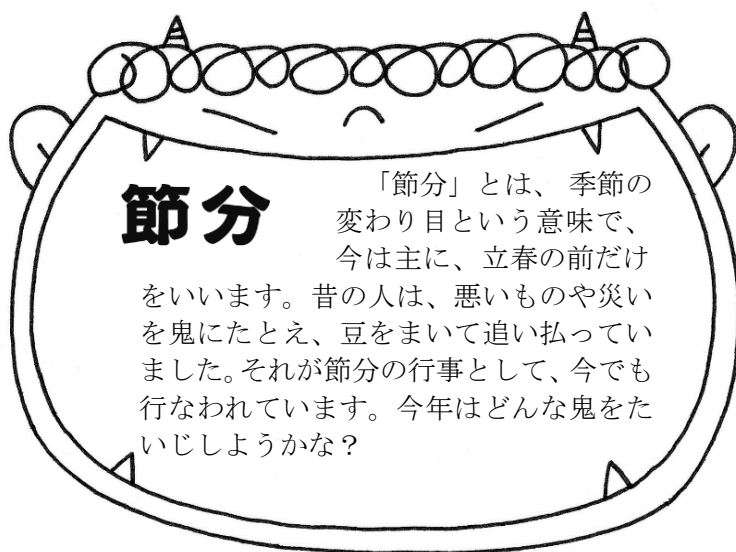 節分
「節分」とは、季節の
変わり目という意味で、
今は主に、立春の前だけ
をいいます。昔の人は、悪いものや災い
を鬼にたとえ、豆をまいて追い払ってい
ました。それが節分の行事として、今でも
行なわれています。今年はどんな鬼をた
いじしようかな？